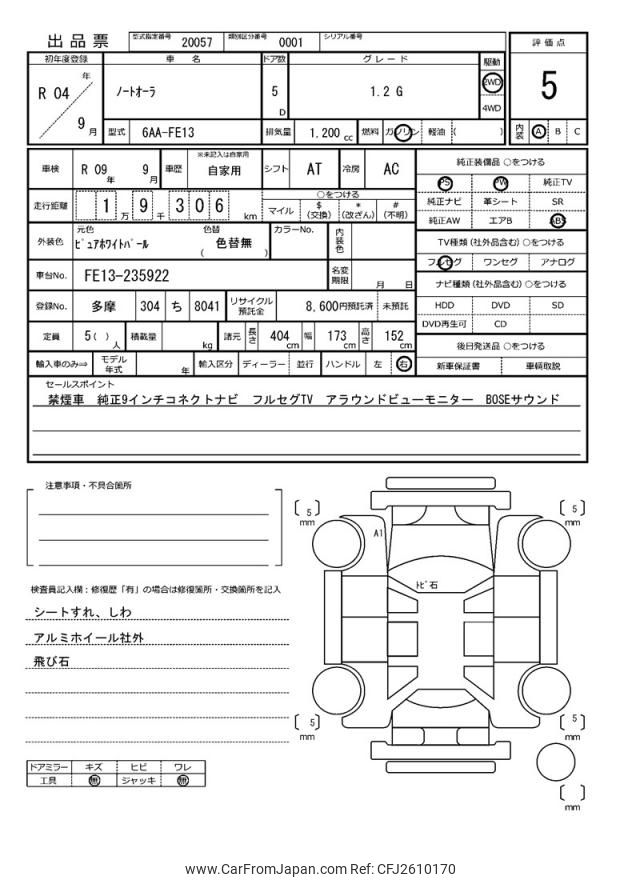 出品票 型式指定番号 20057 類別区分番号 0001 シリアル番号
初年度登録 車名 ドア数 グレード 駆動 評価点
R 04 年 9 月 ノートオーラ 5 D 1.2 G 2WD 4WD 5
型式 6AA-FE13 排気量 1.200 cc 燃料 ガソリン 軽油 ( ) 内装 A B C
車検 R 09 年 9 月 車歴 ※未記入は自家用 自家用 シフト AT 冷房 AC
走行距離 1 万 9 千 3 0 6 km ○をつける
マイル $ (交換) * (改ざん) # (不明)
外装色 元色 ピュアホワイトパール 色替 ( 色替無 ) カラーNo. 内装色
車台No. FE13-235922 名変期限 月 日
登録No. 多摩 304 ち 8041 リサイクル預託金 8,600円預託済 未預託
定員 5( ) 人 積載量 kg 諸元 長さ 404 cm 幅 173 cm 高さ 152 cm
輸入車のみ⇒ モデル年式 年 輸入区分 ディーラー 並行 ハンドル 左 右
純正装備品 ○をつける
PS PW 純正TV
純正ナビ 革シート SR
純正AW エアB ABS
TV種類 (社外品含む) ○をつける
フルセグ ワンセグ アナログ
ナビ種類 (社外品含む) ○をつける
HDD DVD SD
DVD再生可 CD
後日発送品 ○をつける
新車保証書 車輌取説
セールスポイント
禁煙車 純正9インチコネクトナビ フルセグTV アラウンドビューモニター BOSEサウンド
注意事項・不具合箇所
検査員記入欄:修復歴「有」の場合は修復箇所・交換箇所を記入
シートすれ、しわ
アルミホイール社外
飛び石
ドアミラー キズ ヒビ ワレ
工具 無 ジャッキ 無
[ 5 ] mm [ 5 ] mm
A1
トビ石
[ 5 ] mm [ 5 ] mm
[ ] mm
www.CarFromJapan.com Ref: CFJ2610170